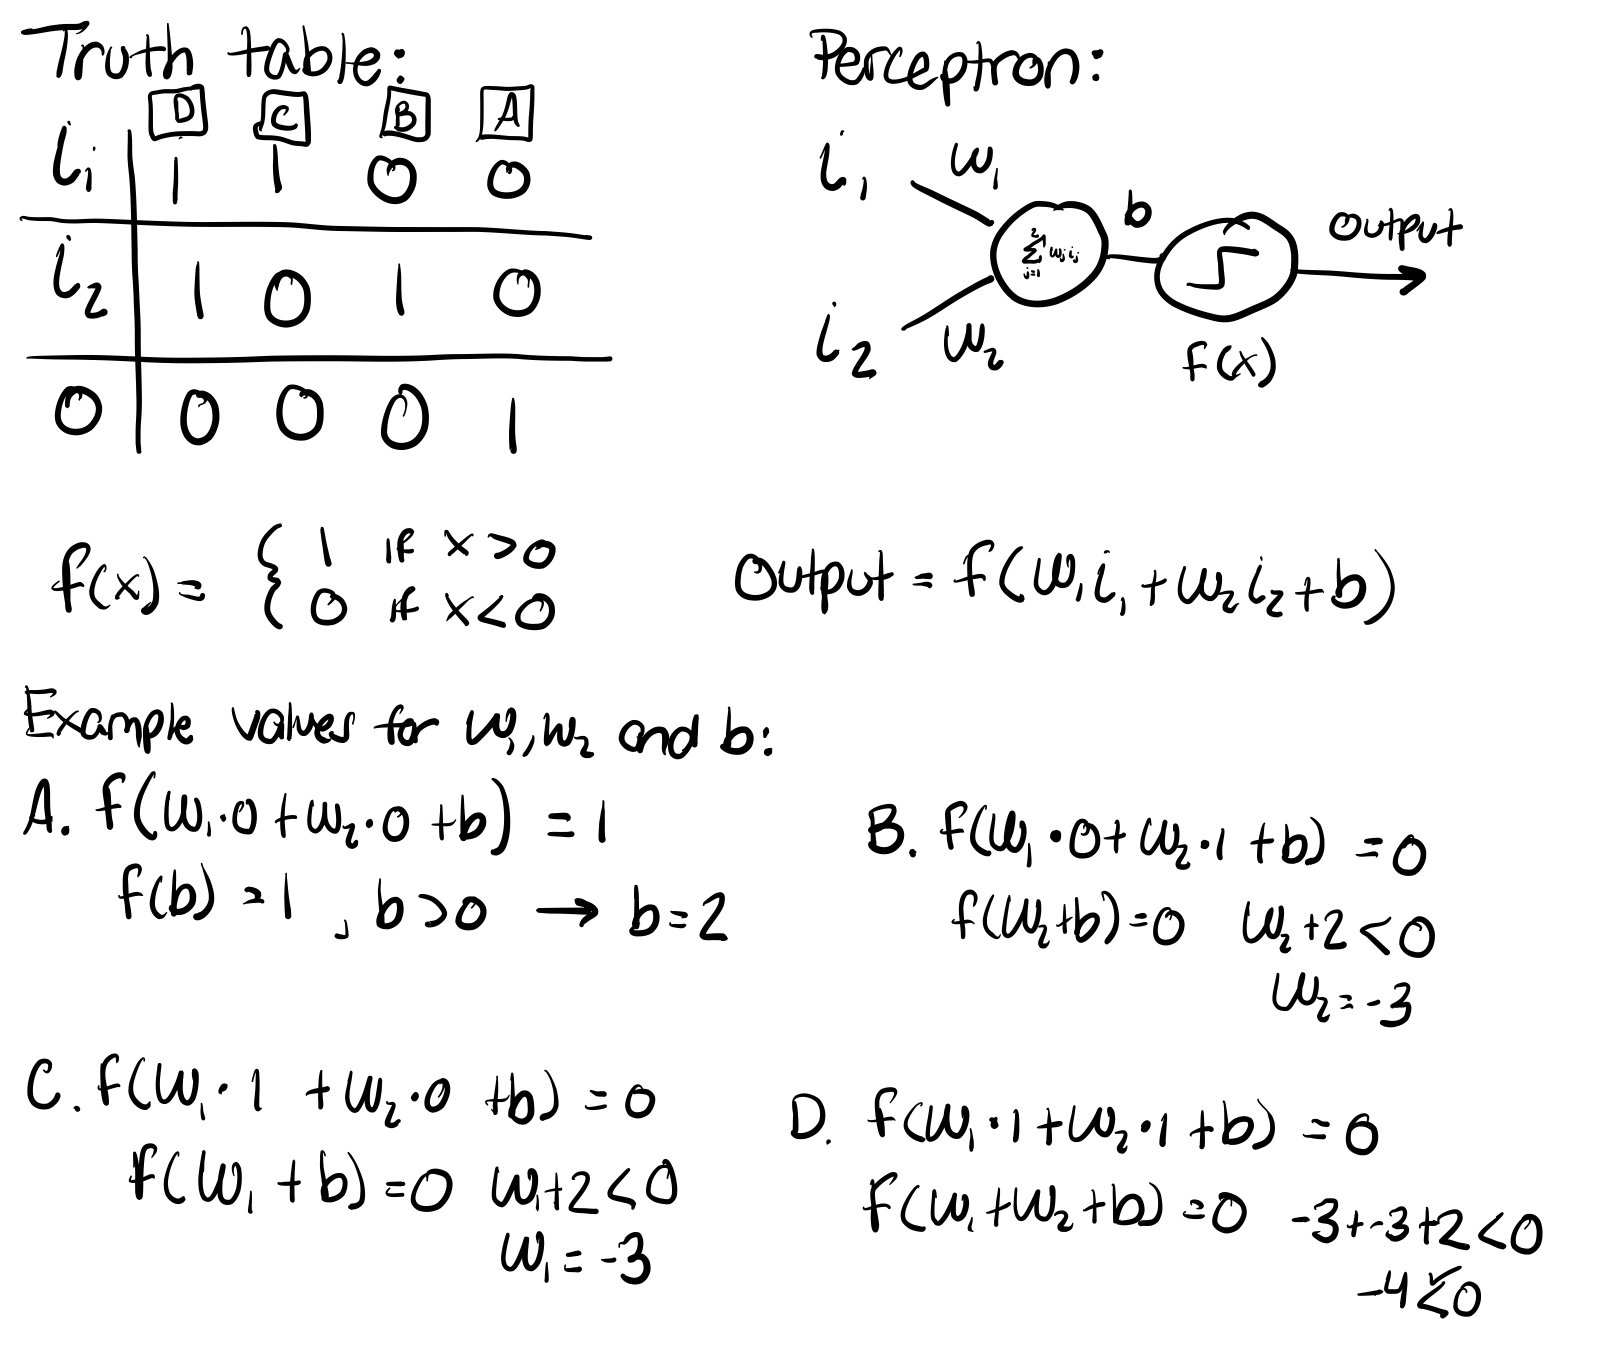 Truth table:
D C B A
i₁ 1 1 0 0
i₂ 1 0 1 0
0 0 0 0 1
Perceptron:
i₁ w₁
b
output
∑ⱼ₌₁² wⱼiⱼ
i₂ w₂
f(x)
f(x) = { 1 if x>0
0 if x<0
Output = f(w₁i₁+w₂i₂+b)
Example values for w₁,w₂ and b:
A. f(w₁·0+w₂·0+b) = 1
f(b)=1, b>0 → b=2
B. f(w₁·0+w₂·1+b) = 0
f(w₂+b)=0 w₂+2<0
w₂=-3
C. f(w₁·1+w₂·0+b) = 0
f(w₁+b)=0 w₁+2<0
w₁=-3
D. f(w₁·1+w₂·1+b) = 0
f(w₁+w₂+b)=0 -3+-3+2<0
-4<0